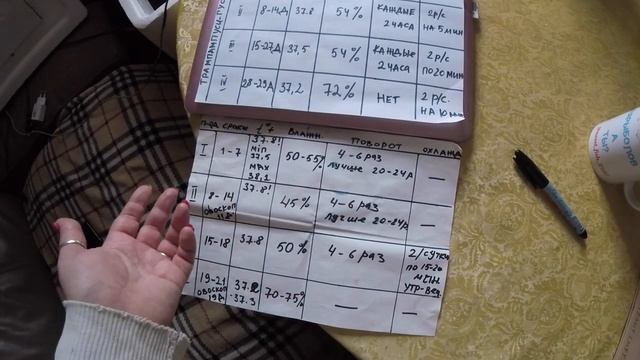 ТРАМПАМПУСИ-ГУС
II 8-14Д 37.8 54% КАЖДЫЕ 2 ЧАСА 2р/с НА 5 МИН
III 15-27Д 37,5 54% КАЖДЫЕ 2 ЧАСА 2 р/с ПО 20 МИН
IV 28-29Д 37,2 72% НЕТ 2 р/с.
П-ОД СРОКИ t°+ ВЛАЖН. ПОВОРОТ ОХЛАЖД
I 1-7 37.8! min 37.5 MAX 38,1 50-55% 4-6 РАЗ ЛУЧШЕ 20-24р —
II 8-14 37.8! 45% 4-6 РАЗ ЛУЧШЕ 20-24р —
15-18 37.8 50% 4-6 РАЗ 2/СУТКИ ПО 15-20 МИН. УТР-ВЕЧ.
19-21 37.2 - 37.3 70-75% — —